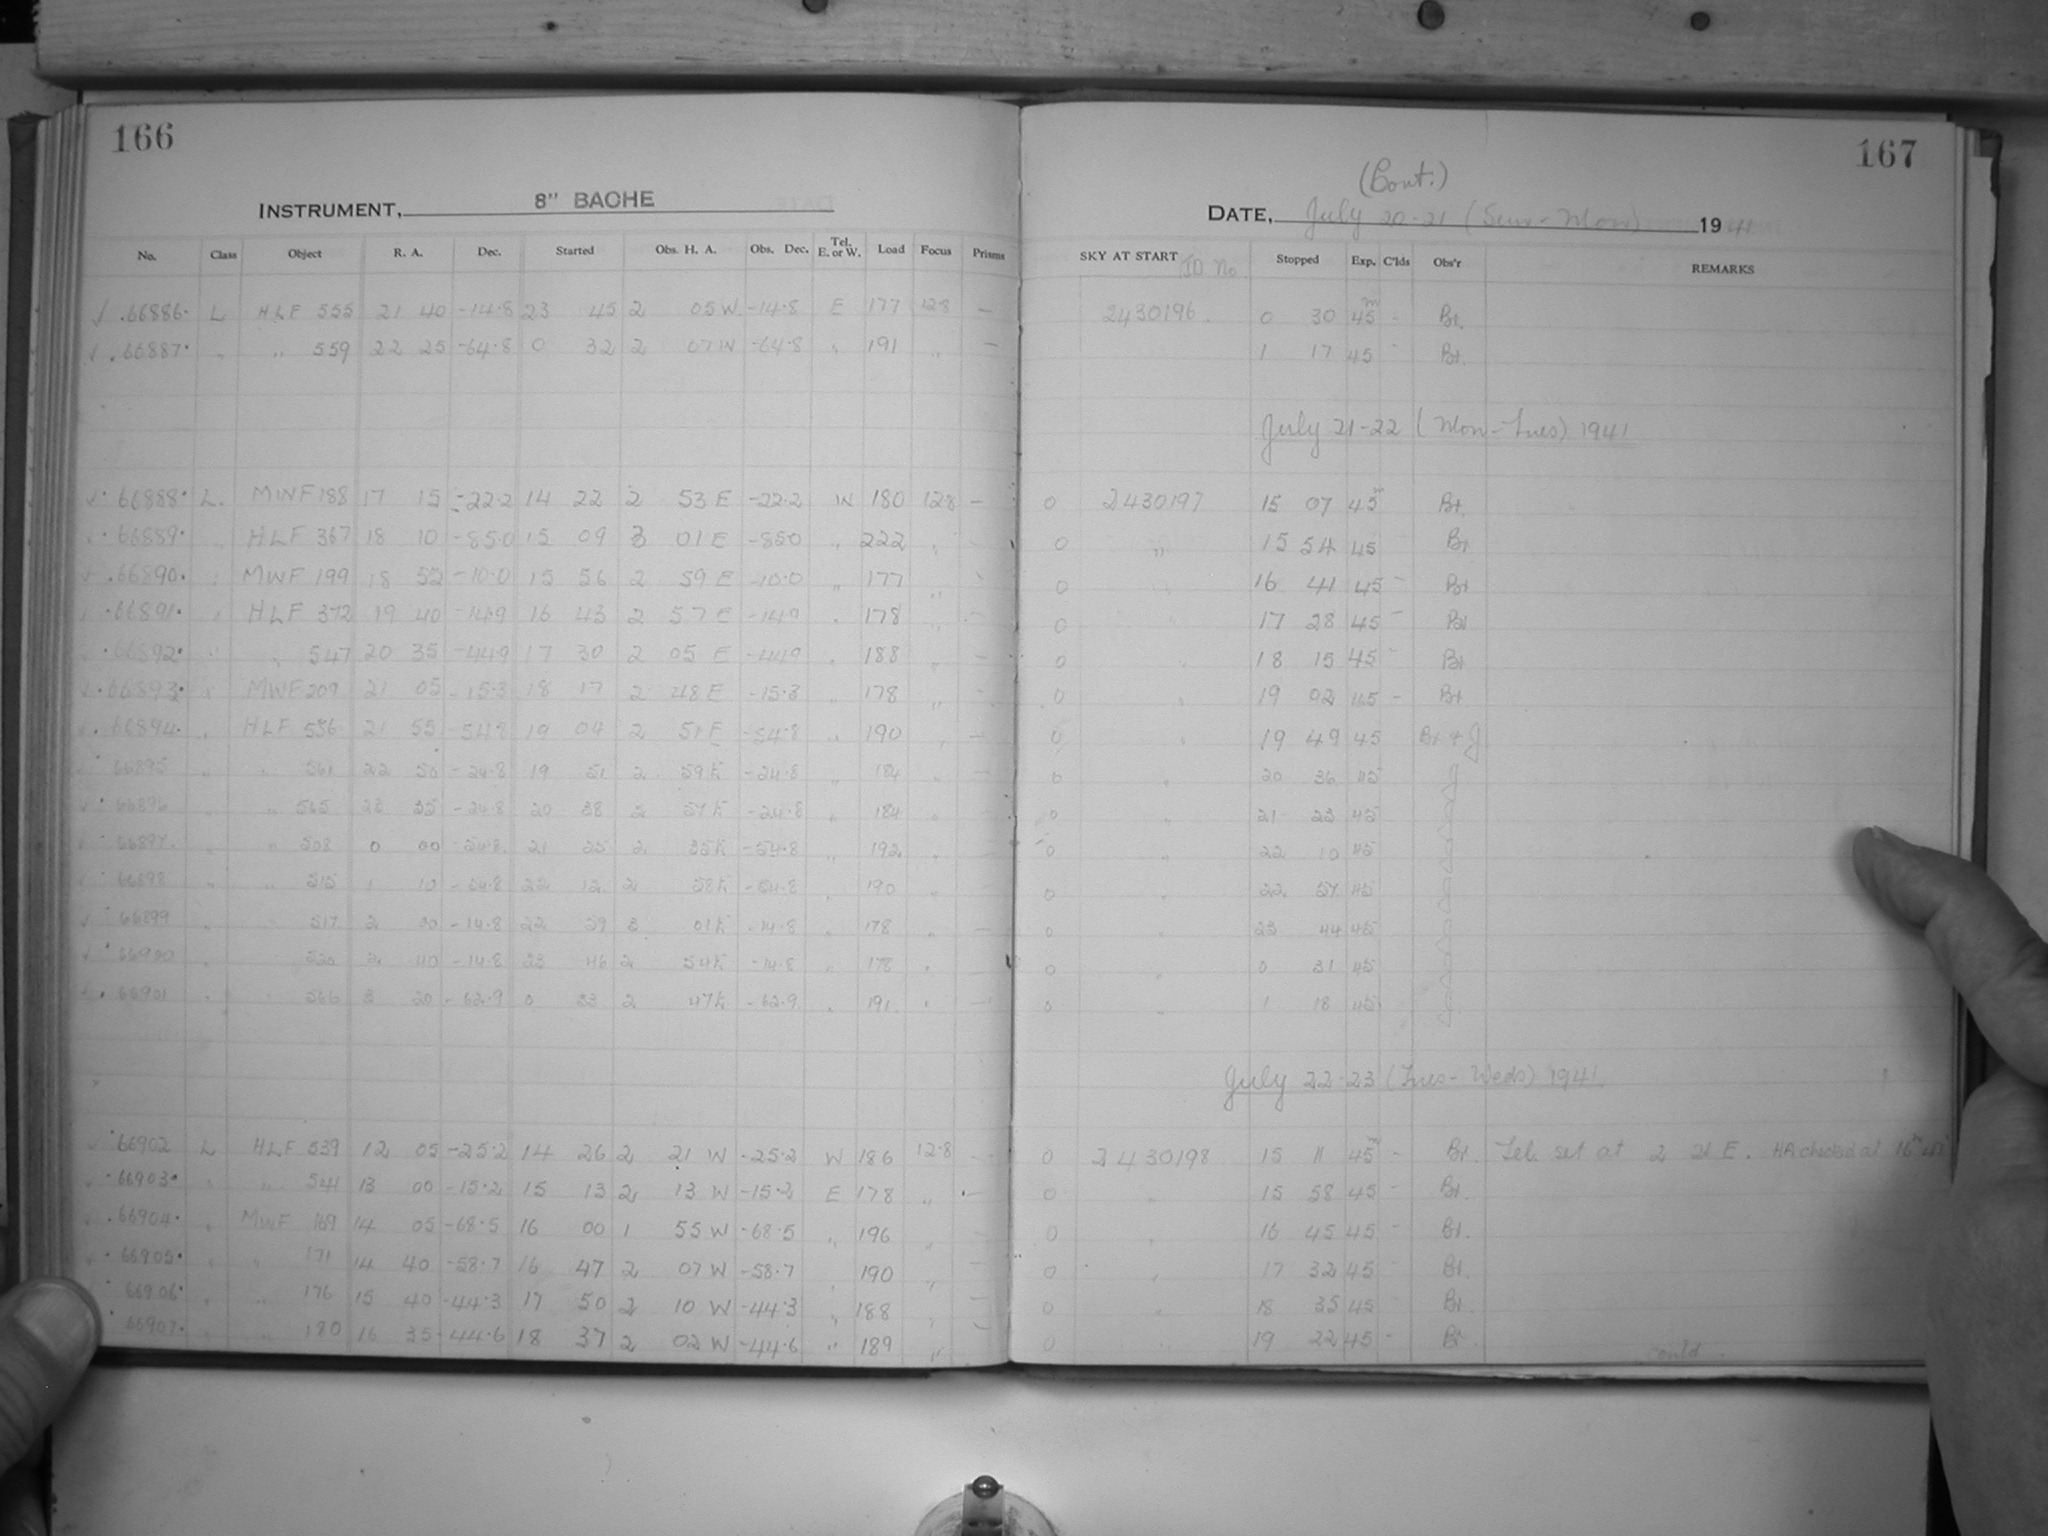 166
INSTRUMENT, 8" BACHE
No. Class Object R. A. Dec. Started Obs. H. A. Obs. Dec. Tel. E. or W. Load Focus Prisms
.66886. L HLF 555 21 40 -14.8 23 45 2 05 W -14.8 E 177 12.8 —
.66887. " " 559 22 25 -64.8 0 32 2 07 W -64.8 " 191 " —
66888. L. MWF 188 17 15 -22.2 14 22 2 53 E -22.2 W 180 12.8 —
.66889. " HLF 367 18 10 -85.0 15 09 3 01 E -85.0 " 222 "
.66890. " MWF 199 18 52 -10.0 15 56 2 59 E -10.0 " 177 "
.66891. " HLF 372 19 40 -14.9 16 43 2 57 E -14.9 " 178 " —
.66892. " " 547 20 35 -44.9 17 30 2 05 E -44.9 " 188 " —
.66893. " MWF 209 21 05 -15.3 18 17 2 48 E -15.3 " 178 " —
.66894. " HLF 556 21 55 -54.8 19 04 2 51 E -54.8 " 190 " —
66895 " " 561 22 50 -24.8 19 51 2 59 E -24.8 " 184 " —
66896 " " 565 23 35 -24.8 20 38 2 57 E -24.8 " 184 "
66897. " " 508 0 00 -54.8 21 25 2 35 E -54.8 " 192 "
66898 " " 515 1 10 -54.8 22 12 2 58 E -54.8 " 190 "
66899 " " 517 2 00 -14.8 22 59 3 01 E -14.8 " 178 " —
66900 " 520 2 40 -14.8 23 46 2 54 E -14.8 " 178 " —
66901 " 566 3 20 -62.9 0 33 2 47 E -62.9 " 191 " —
66902 L HLF 539 12 05 -25.2 14 26 2 21 W -25.2 W 186 12.8 —
.66903. " " 541 13 00 -15.2 15 13 2 13 W -15.2 E 178 " —
.66904. " MWF 169 14 05 -68.5 16 00 1 55 W -68.5 " 196 "
.66905. " " 171 14 40 -58.7 16 47 2 07 W -58.7 " 190 " —
66906. " " 176 15 40 -44.3 17 50 2 10 W -44.3 " 188 " —
66907. " " 180 16 35 -44.6 18 37 2 02 W -44.6 " 189 "
167
(Cont.)
DATE, July 20-21 (Sun-Mon) 1941
SKY AT START JD No Stopped Exp. C'lds Obs'r REMARKS
2430196. 0 30 45m - Bt.
1 17 45 - Bt.
July 21-22 (Mon-Tues) 1941
0 2430197 15 07 45m Bt.
0 " 15 54 45 Bt
0 16 41 45 - Bt
0 17 28 45 - Bt
0 " 18 15 45 - Bt
0 " 19 02 45 - Bt
0 " 19 49 45 Bt + J
0 " 20 36 45 J
0 " 21 23 45 J
0 " 22 10 45 J
0 " 22 57 45 J
0 " 23 44 45 J
0 " 0 31 45 J
0 " 1 18 45 J
July 22-23 (Tues-Weds) 1941
0 2430198 15 11 45m - Bt. Tel. set at 2 21 E. HA checked at
0 " 15 58 45 - Bt.
0 " 16 45 45 - Bt.
0 " 17 32 45 - Bt.
0 " 18 35 45 Bt.
0 " 19 22 45 - Bt.
contd.